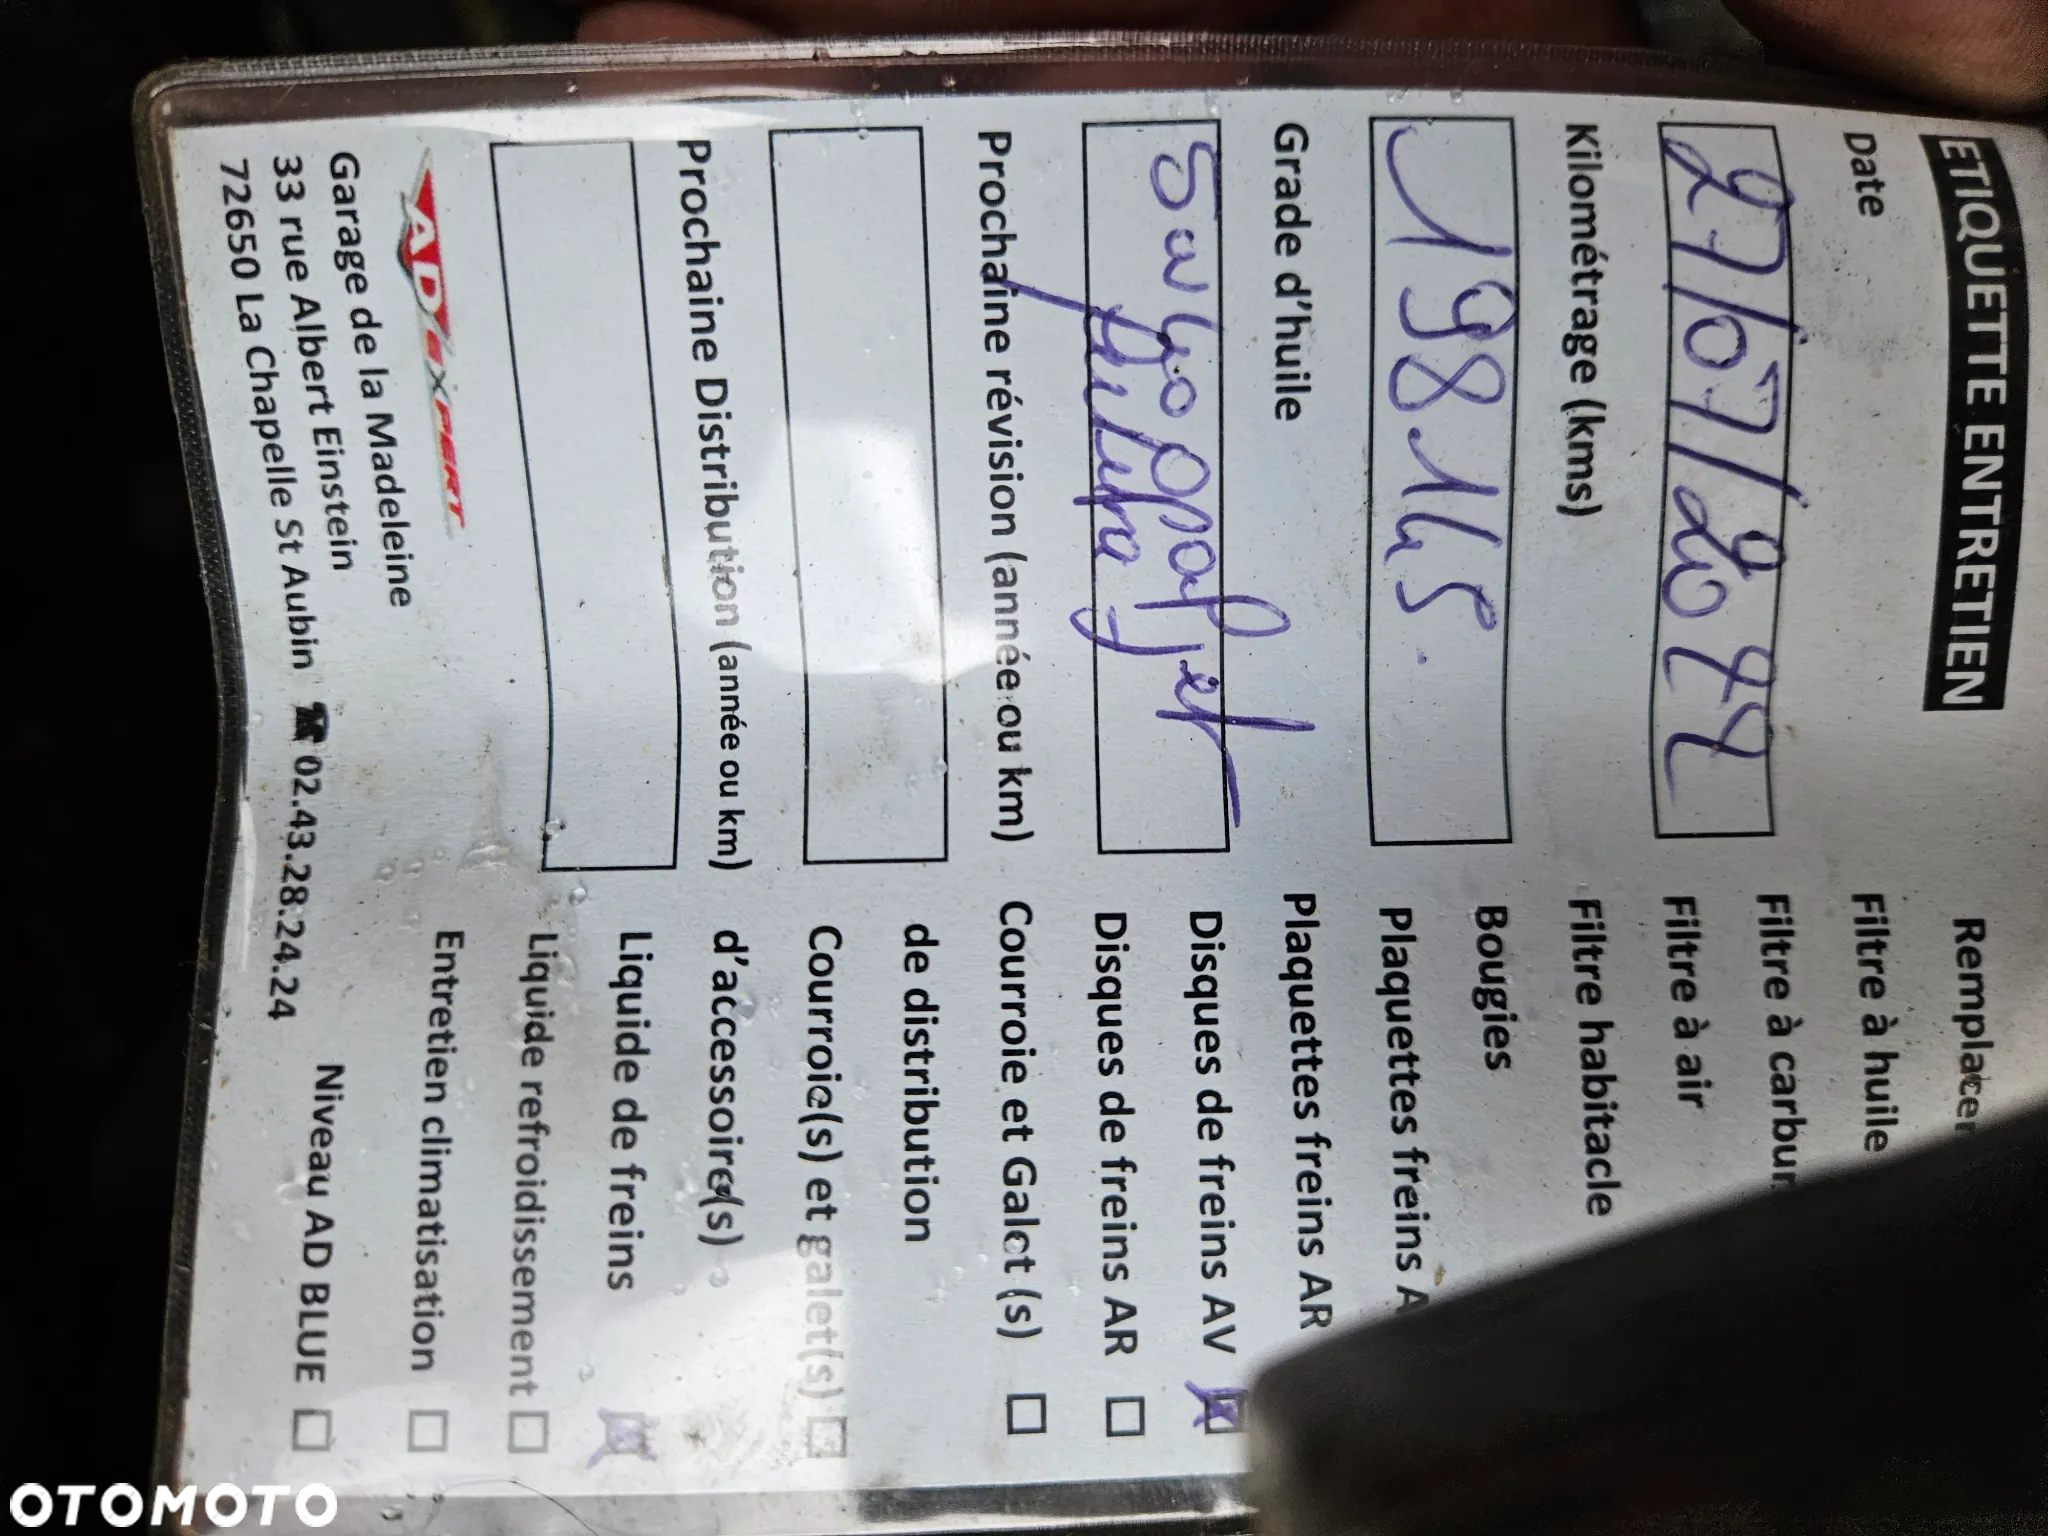 ETIQUETTE ENTRETIEN
Date
27/07/2022
Kilométrage (kms)
198145.
Grade d'huile
5w40
Prochaine révision (année ou km)
Prochaine Distribution (année ou km)
AD EXPERT
Garage de la Madeleine
33 rue Albert Einstein
72650 La Chapelle St Aubin ☎ 02.43.28.24.24
Filtre à huile
Filtre à
Filtre à air
Filtre habitacle
Bougies
Plaquettes freins
Plaquettes freins AR
Disques de freins AV ☒
Disques de freins AR ☐
Courroie et Galet (s) ☐
de distribution
Courroie(s) et galet(s) ☐
d'accessoire(s)
Liquide de freins ☒
Liquide refroidissement ☐
Entretien climatisation ☐
Niveau AD BLUE ☐
OTOMOTO